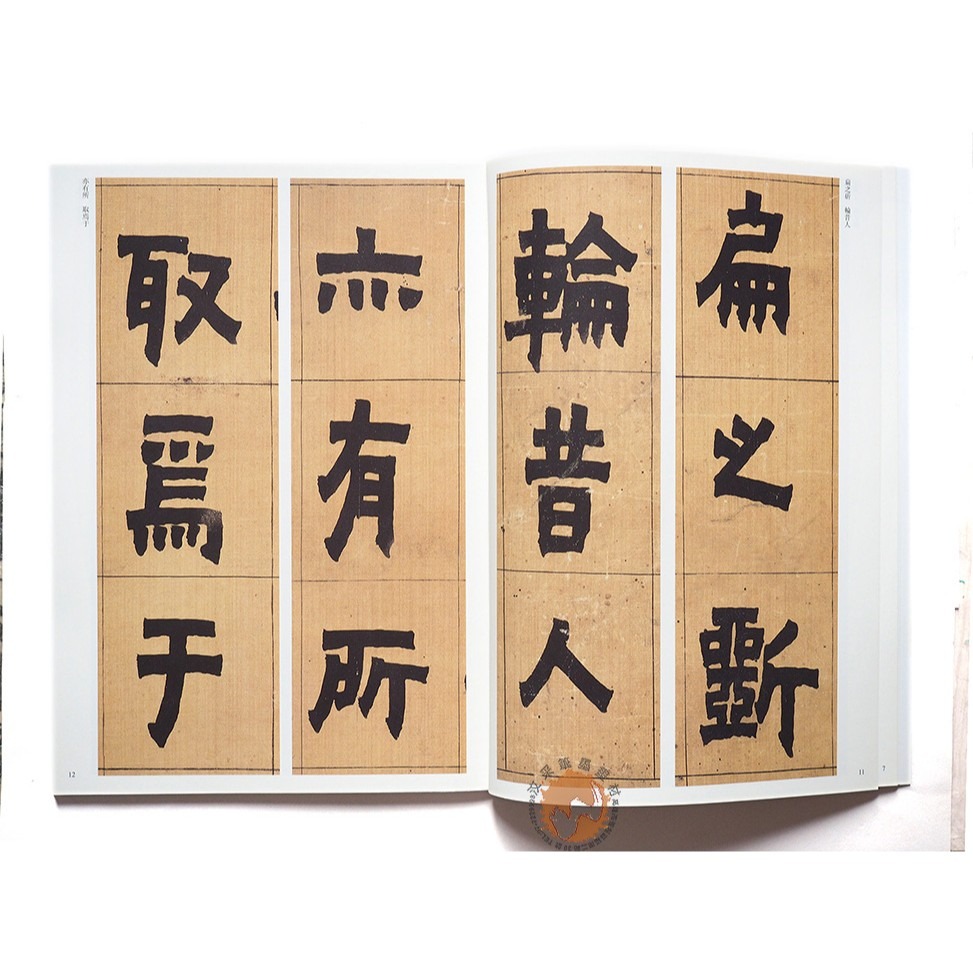 扁之斲　輪昔人
扁之斲
輪昔人
11
7
亦有所
取焉于
亦有所　取焉于
12